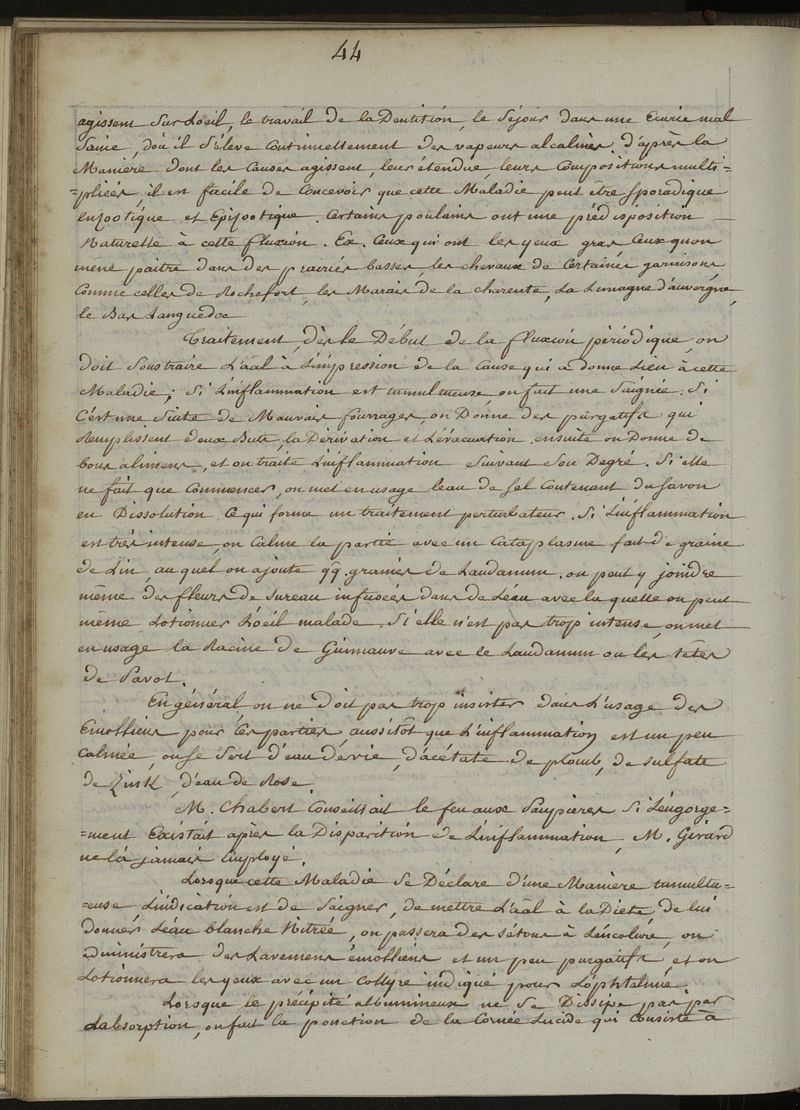 44
agissent Sur Loeil, le travail de la Dentition, le Séjour dans une Ecurie mal
Saine, doù il S'élève Continuellement des vapeurs alcalines, d'après la
Manière dont les Causes agissent, leur étendue, leurs Compositions multi=
=pliées, il est facile de Concevoir que cette Maladie peut être Sporadique
enzootique et Epizootique. Certains poulains ont une prédisposition
Naturelle à cette fluxion. Ex. Ceux qui ont les yeux gras Ceux quon
mene paitre dans des prairies basses, les chevaux de Certaines garnisons,
Comme celles de Rochefort, les Marais de la charente, La Limagne d'auvergne,
le Bas Languedoc
Traitement, dès le Début de la fluxion périodique, on
doit Soustraire L'aal à L'impression de la Cause qui a donné Lieu à cette
Maladie; Si L'inflammation est tumultueuse on fait une Saignée. Si
C'est une Suite de Mauvais fourrages, on Donne des purgatifs qui
Remplissent deux Buts, la Dérivation et L'évacuation ensuite on Donne de
bons alimens, et on traite L'inflammation Suivant Son Degré. Si elle
ne fait que Commencer, on met en usage leau de Sel Contenant du Savon
en Dissolution Ce qui forme un traitement perturbateur. Si L'inflammation
est très intense, on Calme la partie avec un Cataplasme fait de graine
de Lin, au quel on ajoute qq. graines de Laudanum. on peut y joindre
même des fleurs de Sureau infusées dans de Leau avec la quelle on peut
même Lotionner L'oeil malade. Si elle n'est pas trop intense, on met
en usage la Racine de Guimauve avec le Laudanum ou les têtes
de Pavot.
En général on ne doit pas trop insister dans L'usage des
Emolliens pour les parties, aussitôt que L'inflammation est un peu
Calmée, on se Sert d'eau de vie, d'acétate de plomb, de sulfate
de Zink, d'eau de Rose.
M. Chabert Conseillait le feu aux Paupières Si L'engorge=
=ment Existait après la Disparition de L'inflammation, M. Girard
ne l'a jamais Employé.
Lorsque cette Maladie Se Déclare d'une Manière tumultu=
=euse, L'indication est de Saigner, de mettre L'aal à la Diète, de lui
donner L'eau blanche Nitrée, on passera des sétons à L'encolure, on
administrera des Lavemens émolliens et un peu purgatifs, et on
Lotionnera les yeux avec un Collyre indiqué pour L'ophtalmie.
Lorsque le précipité albumineux ne Se Dissipe pas par
L'absorption, on fait la ponction de la Cornée Lucide qui Consiste à